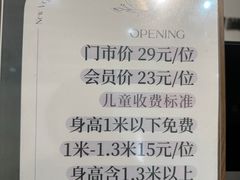 OPENING
门市价 29元/位
会员价 23元/位
儿童收费标准
身高1米以下免费
1米-1.3米15元/位
身高含1.3米以上